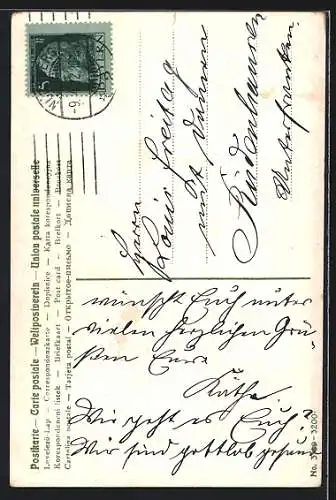 Postkarte — Carte postale — Weltpostverein — Union postale universelle
Levelező-Lap — Correspondenzkarte — Dopisnice — Karta korespondencyjna
Korespondenční lístek — Briefkaart — Post card — Brefkort — Brevkort
Cartolina postale — Tarjeta postal — Открытое письмо —
BAYERN
5
Herrn
Louis Freitag
mit Damen
Rüdenhausen
Unterfranken.
wünscht Euch unter
vielen herzlichen Grü-
ßen Eure
Käthe.
Wie geht es Euch?
Wir sind gottlob gesund